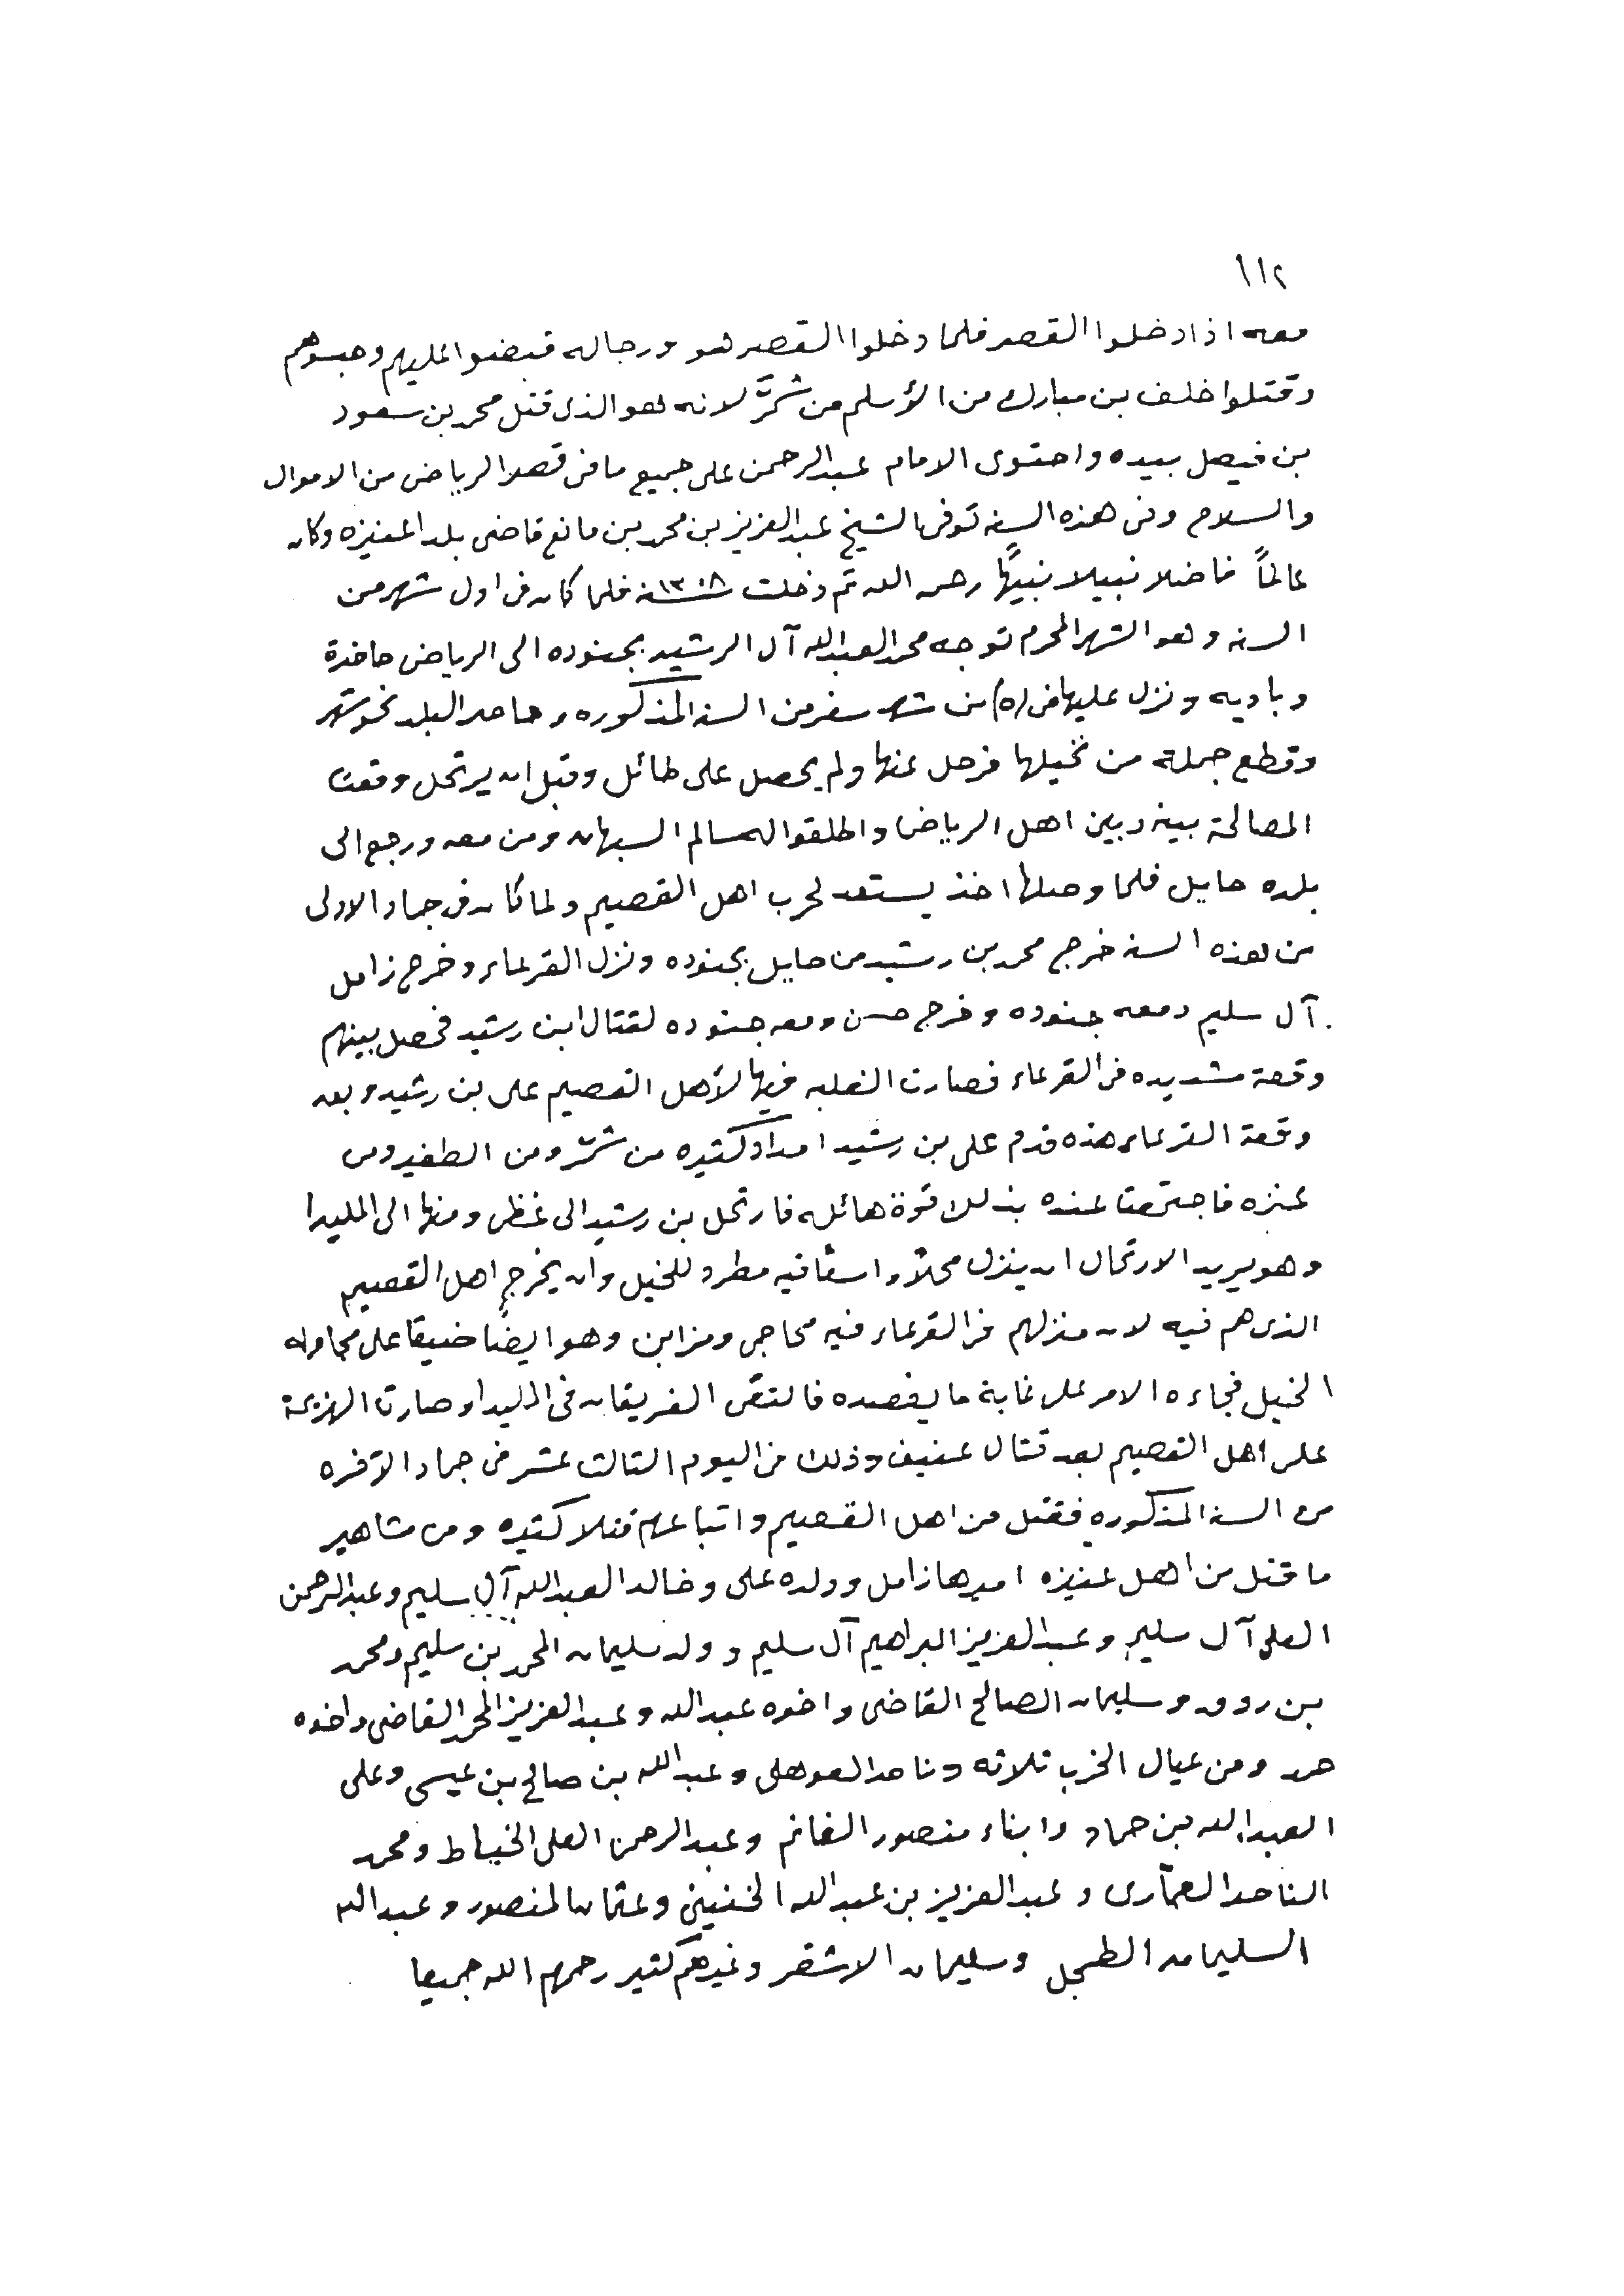 ١١٢
معه اذا دخلوا القصر فلما دخلوا القصر هو ورجاله قبضوا عليهم وحبسوهم
وقتلوا خلف بن مبارك من الأسلم من شمَّر لانه هو الذى قتل محمد بن سعود
بن فيصل بيده واحتوى الامام عبدالرحمن على جميع ما فى قصر الرياض من الاموال
والسلاح وفى هذه السنه توفى الشيخ عبدالعزيز بن محمد بن مانع قاضى بلد اعنيزه وكان
عالماً فاضلا نبيلا نبيهًا رحمه الله ثم دخلت سنة ١٣٠٨ فلما كان فى اول شهر من
السنه وهو الشهر المحرم توجه محمد العبدالله آل الرشيد بجنوده الى الرياض حاضرة
وباديه ونزل عليها فى (٥) من شهر سفر من السنه المذكوره وحاصر البلد نحو شهر
وقطع جملة من نخيلها فرحل عنها ولم يحصل على طائل وقبل ان يرتحل وقعت
المصالحة بينه وبين اهل الرياض واطلقوا له سالم السبهان ومن معه ورجع الى
بلده حايل فلما وصلها اخذ يستعد لحرب اهل القصيم ولما كان فى جماد الاولى
من هذه السنه خرج محمد بن رشيد من حايل بجنوده ونزل القرعاء وخرج زامل
آل سليم ومعه جنوده وخرج حسن ومعه جنوده لقتال ابن رشيد فحصل بينهم
وقعة شديده فى القرعاء فصارت الغلبه فيها لأهل القصيم على بن رشيد وبعد
وقعة القرعاء هذه قدم على بن رشيد امداد كثيره من شمر ومن الظفير ومن
عنزه فاجتمعت عنده بذلك قوة هائله فارتحل بن رشيد الى غظى ومنها الى المليدا
وهو يريد الارتحال ان ينزل محلاً واسعا فيه مطرد للخيل وان يخرج اهل القصيم
الذى هم فيه لان منزلهم فى القرعاء فيه محاجى ومزابن وهو ايضًا ضيقا على مجاوله
الخيل فجاءه الامر على غاية ما يقصده فالتقى الفريقان فى المليداء وصارت الهزيمة
على اهل القصيم بعد قتال عنيف وذلك فى اليوم الثالث عشر من جماد الآخره
من السنه المذكوره فقتل من اهل القصيم واتباعهم قتلا كثيره ومن مشاهير
ما قتل من اهل عنيزه اميرها زامل وولده على وخالد العبدالله آل سليم وعبدالرحمن
العلى آل سليم وعبدالعزيز البراهيم آل سليم وولد سليمان المحمد بن سليم ومحمد
بن روق وسليمان الصالح القاضى واخوه عبدالله وعبدالعزيز المحمد القاضى واخوه
حمد ومن عيال الخرب ثلاثه وناصر العوهلى وعبدالله بن صالح بن عيسى وعلى
العبدالله بن حماد وابناء منصور الغانم وعبدالرحمن العلى الخياط ومحمد
الناصر العمَّارى وعبدالعزيز بن عبدالله الخنينى وعثمان المنصور وعبدالله
السليمان الطجل وسليمان الاشقر وغيرهم كثير رحمهم الله جميعا